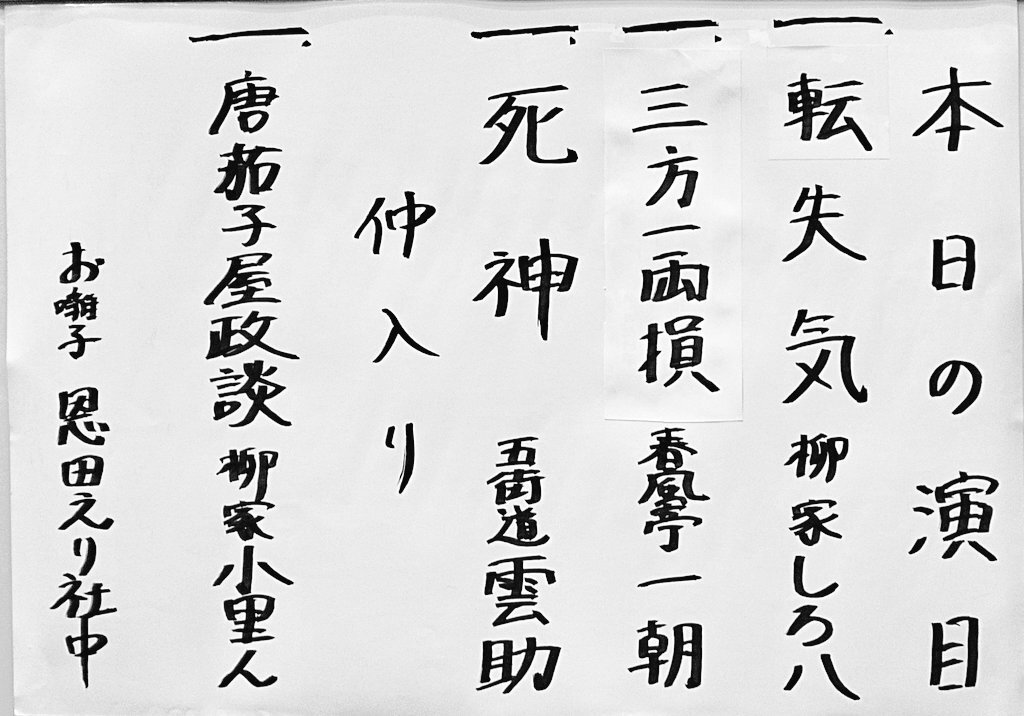 本日の演目
一、転失気 柳家しろ八
一、三方一両損 春風亭一朝
一、死神 五街道雲助
仲入り
一、唐茄子屋政談 柳家小里ん
お囃子 恩田えり社中